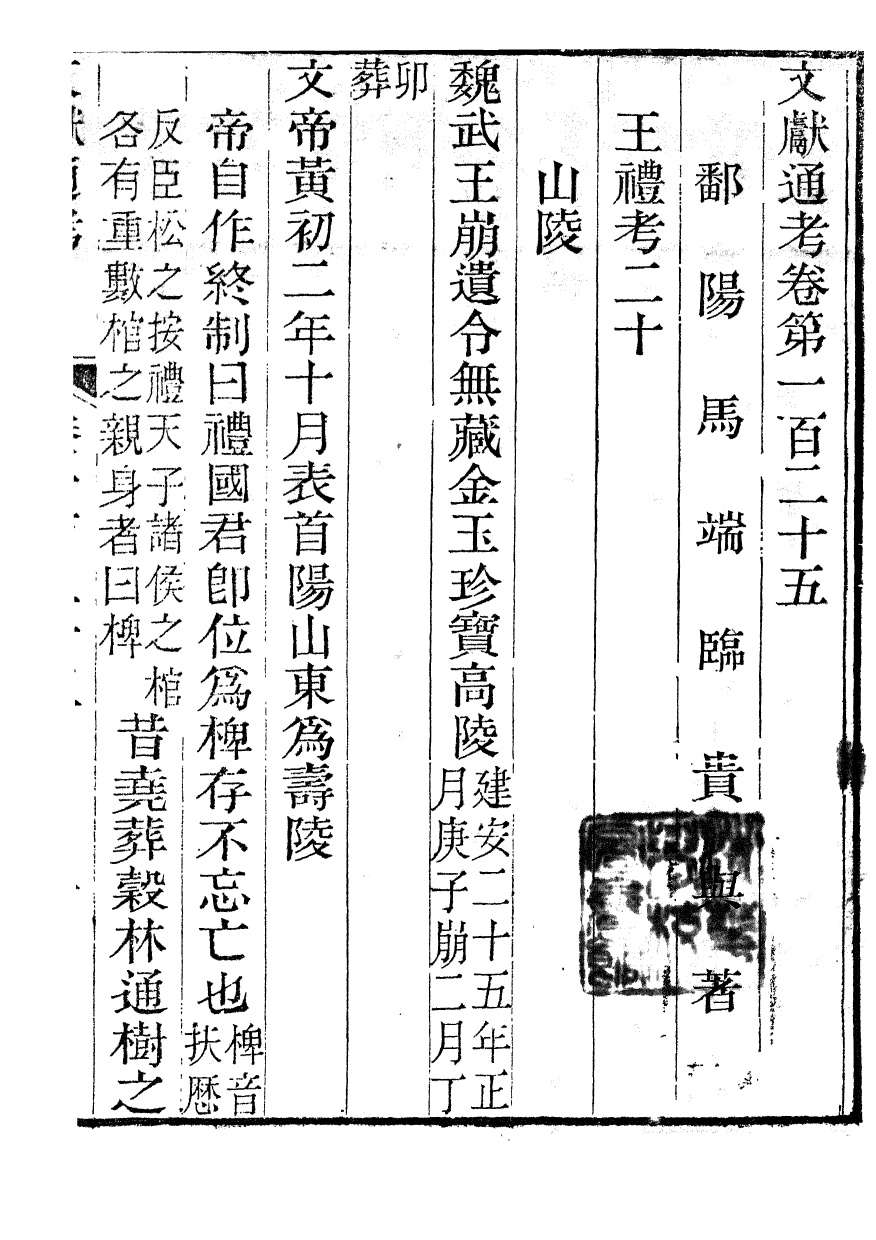 文獻通考卷第一百二十五
鄱陽馬端臨貴與著
王禮考二十
山陵
魏武王崩遺令無藏金玉珍寶高陵建安二十五年正月庚子崩二月丁
卯葬
文帝黃初二年十月表首陽山東爲壽陵
帝自作終制曰禮國君卽位爲椑存不忘亡也椑音扶歷
反臣松之按禮天子諸侯之棺各有重數棺之親身者曰椑昔堯葬穀林通樹之